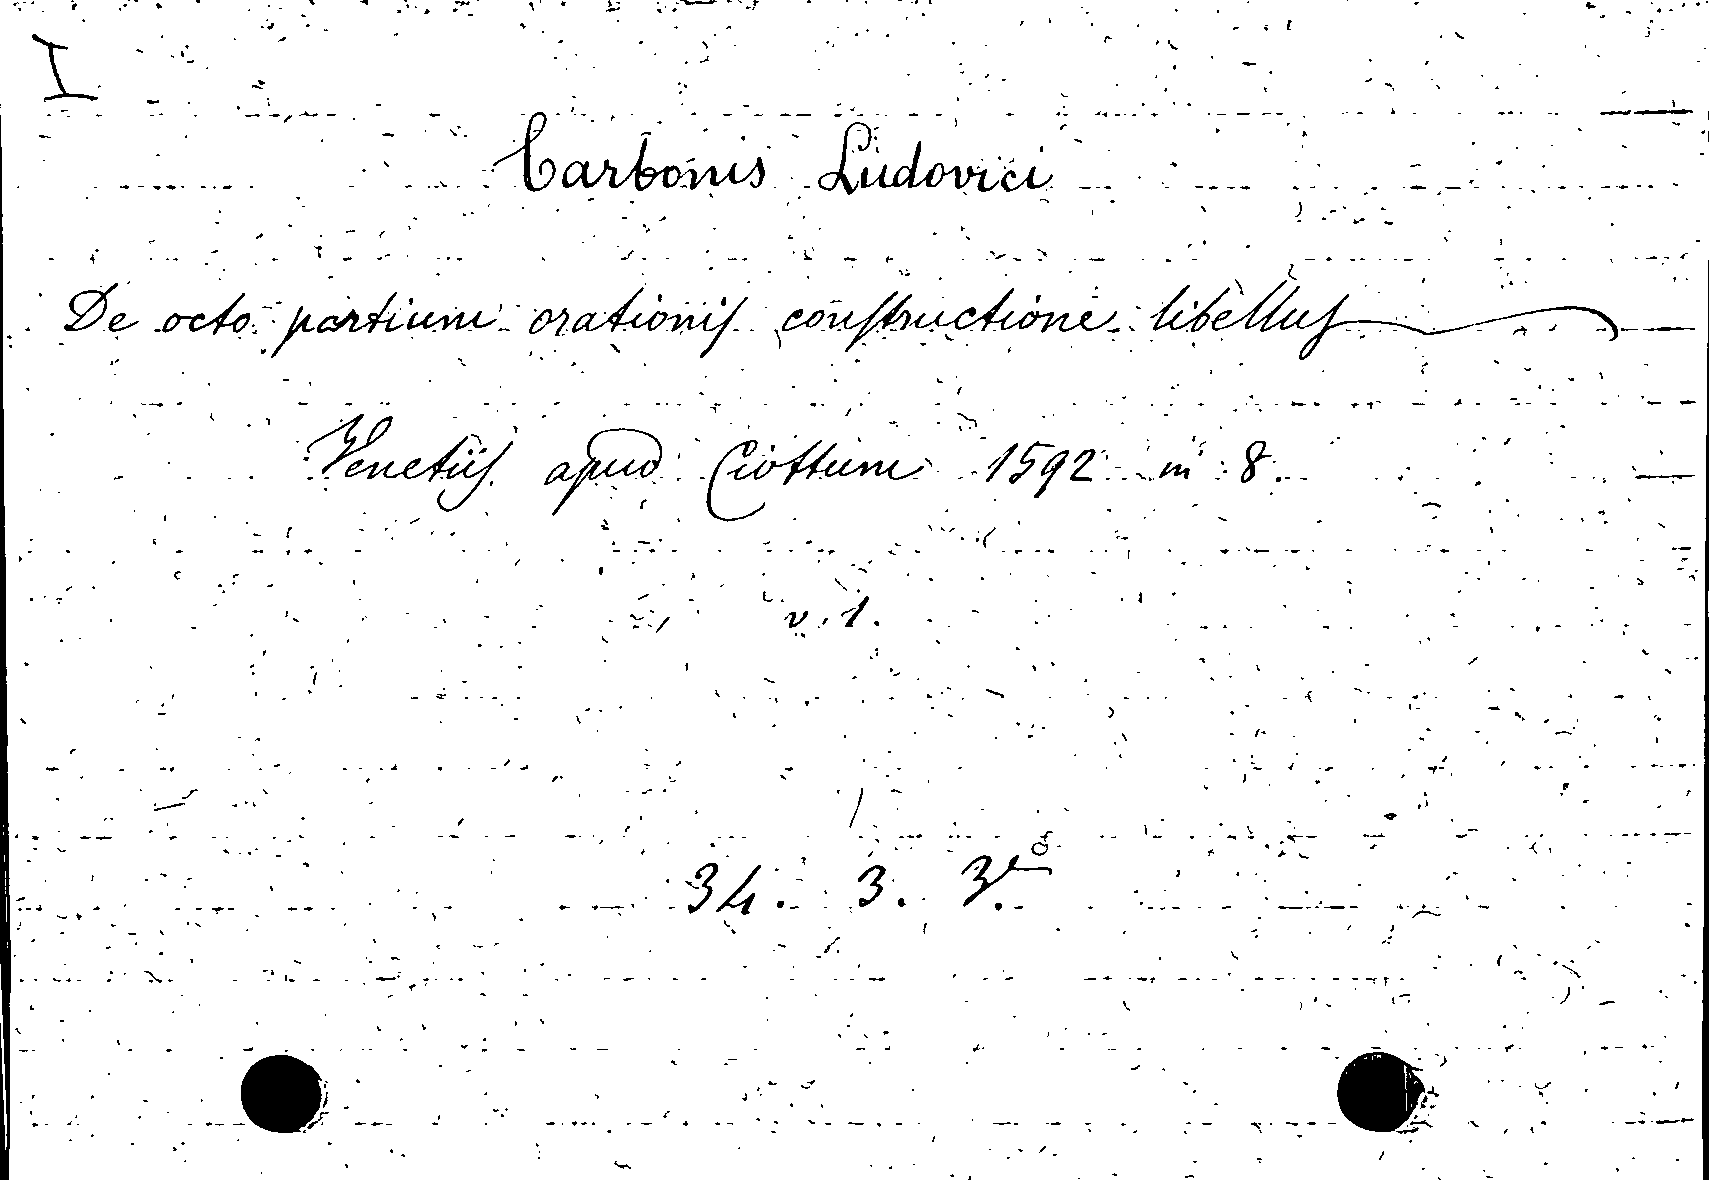 I
Carbonis Ludovici
De octo partium orationis constructione libellus
Venetiis apud Ciottum 1592 in 8.
v. 1.
34. 3. 3.º